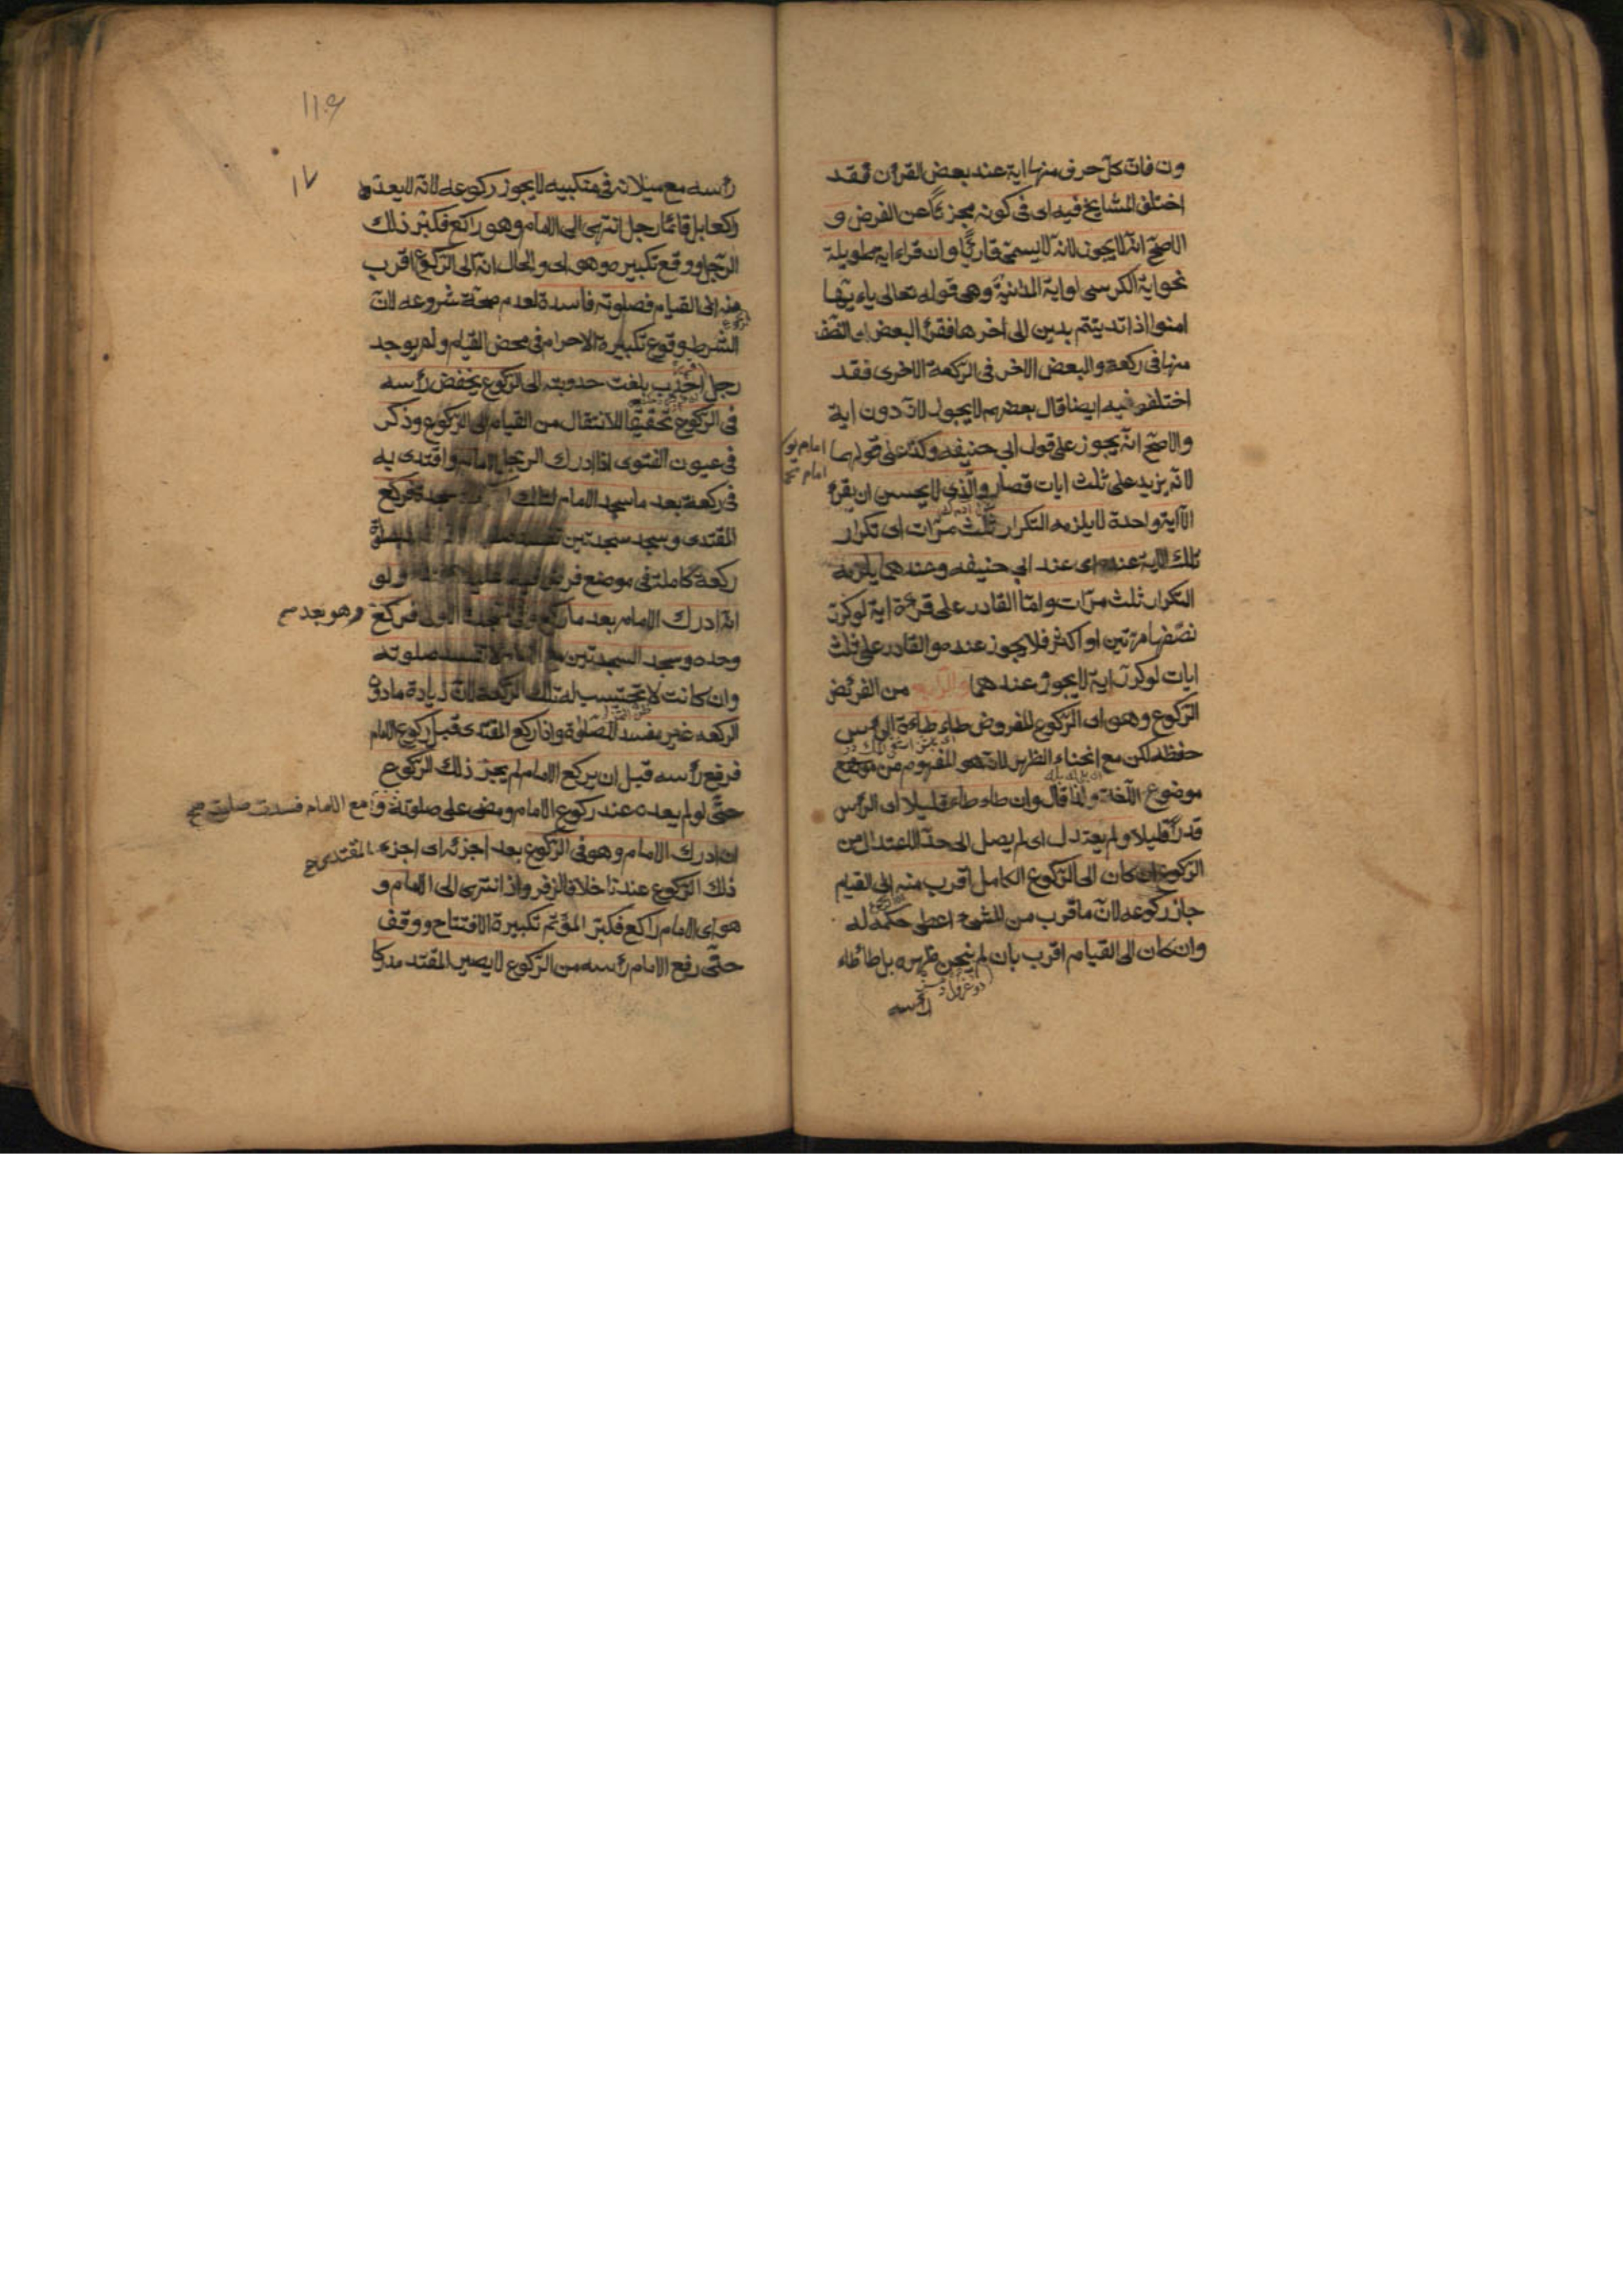 ون فان كل حرف منها اية عند بعض القران فقد
اختلف المشايخ فيه اى فى كونه مجزئا عن الفرض و
الاصح انه لا يجوز لانه لا يسمى قارئا وان قراء اية طويلة
نحو اية الكرسى او اية المداينة وهى قوله تعالى ياء يها
امنوا اذا تداينتم بدين الى اخرها فقرئ البعض اى النصف
منها فى ركعة والبعض الاخر فى الركعة الاخرى فقد
اختلفو فيه ايضا قال بعضهم لا يجوز لانه دون اية
والاصح انه يجوز على قول ابى حنيفه وكذا على قولهما
امام
امام
لانه يزيد على ثلث ايات قصار والذى لا يحسن ان يقرئ
الا اية واحدة لا يلزمه التكرار ثلث مرات اى تكرار
تلك الاية عنده اى عند ابى حنيفه وعندهما يلزمه
التكرار ثلث مرات واما القادر على قرءة اية لو كرر
نصفها مرتين او اكثر فلا يجوز عنده والقادر على ثلث
ايات لو كرر اية لا يجوز عندهما والرابع من الفرئض
الركوع وهو اى الركوع المفروض طاء طاءة الرأس
حفظه لكن مع انحناء الظهر لانه هو المفهوم من موضع
موضوع اللغة ولذا قال وان طاء طاء قليلا اى الرأس
قدرا قليلا ولم يعتدل اى لم يصل الى حد الاعتدال من
الركوع ان كان الى الركوع الكامل اقرب منه الى القيام
جاز ركوعه لان ما قرب من الشئ اعطى حكمه له
وان كان الى القيام اقرب بان لم ينحن ظهره بل طاطاء
رأسه
١٧
رأسه مع ميلانه فى منكبيه لا يجوز ركوعه لانه لا يعد
راكعا بل قائما رجل انتهى الى الامام وهو راكع فكبر ذلك
الرجل ووقع تكبيره وهو اى والحال انه الى الركوع اقرب
منه الى القيام فصلوته فاسدة لعدم صحة شروعه لان
الركوع
الشرط وقوع تكبيرة الاحرام فى محض القيام ولم يوجد
رجل احدب بلغت حدوبته الى الركوع يخفض رأسه
فى الركوع تحقيقا للانتقال من القيام الى الركوع وذكر
فى عيون الفتوى اذا ادرك الرجل الامام واقتدى به
فى ركعة بعد ما سجد الامام لتلك سجدة فركع
المقتدى وسجد سجدتين تفسد
ركعة كاملة فى موضع فرض ولو
انه ادرك الامام بعد ما ركع وهو فى السجدة الاولى فركع
وهو بعد
وحده وسجد السجدتين مع الامام لا تفسد صلوته
وان كانت لا تحتسب له تلك الركعة لان زيادة ما دون
الركعه غير مفسد الصلوة واذا ركع المقتدى قبل ركوع الامام
فرفع رأسه قبل ان يركع الامام لم يجز ذلك الركوع
حتى لو لم يعده عند ركوع الامام ومضى على صلوته
مع الامام فسدت صلوته صح
ان ادرك الامام وهو فى الركوع بعد اجزئه اى اجزء
المقتدى صح
ذلك الركوع عندنا خلافا لزفر واذا انتهى الى الامام و
هو اى الامام راكع فكبر المؤتم تكبيرة الافتتاح ووقف
حتى رفع الامام رأسه من الركوع لا يصير المقتد مدركا